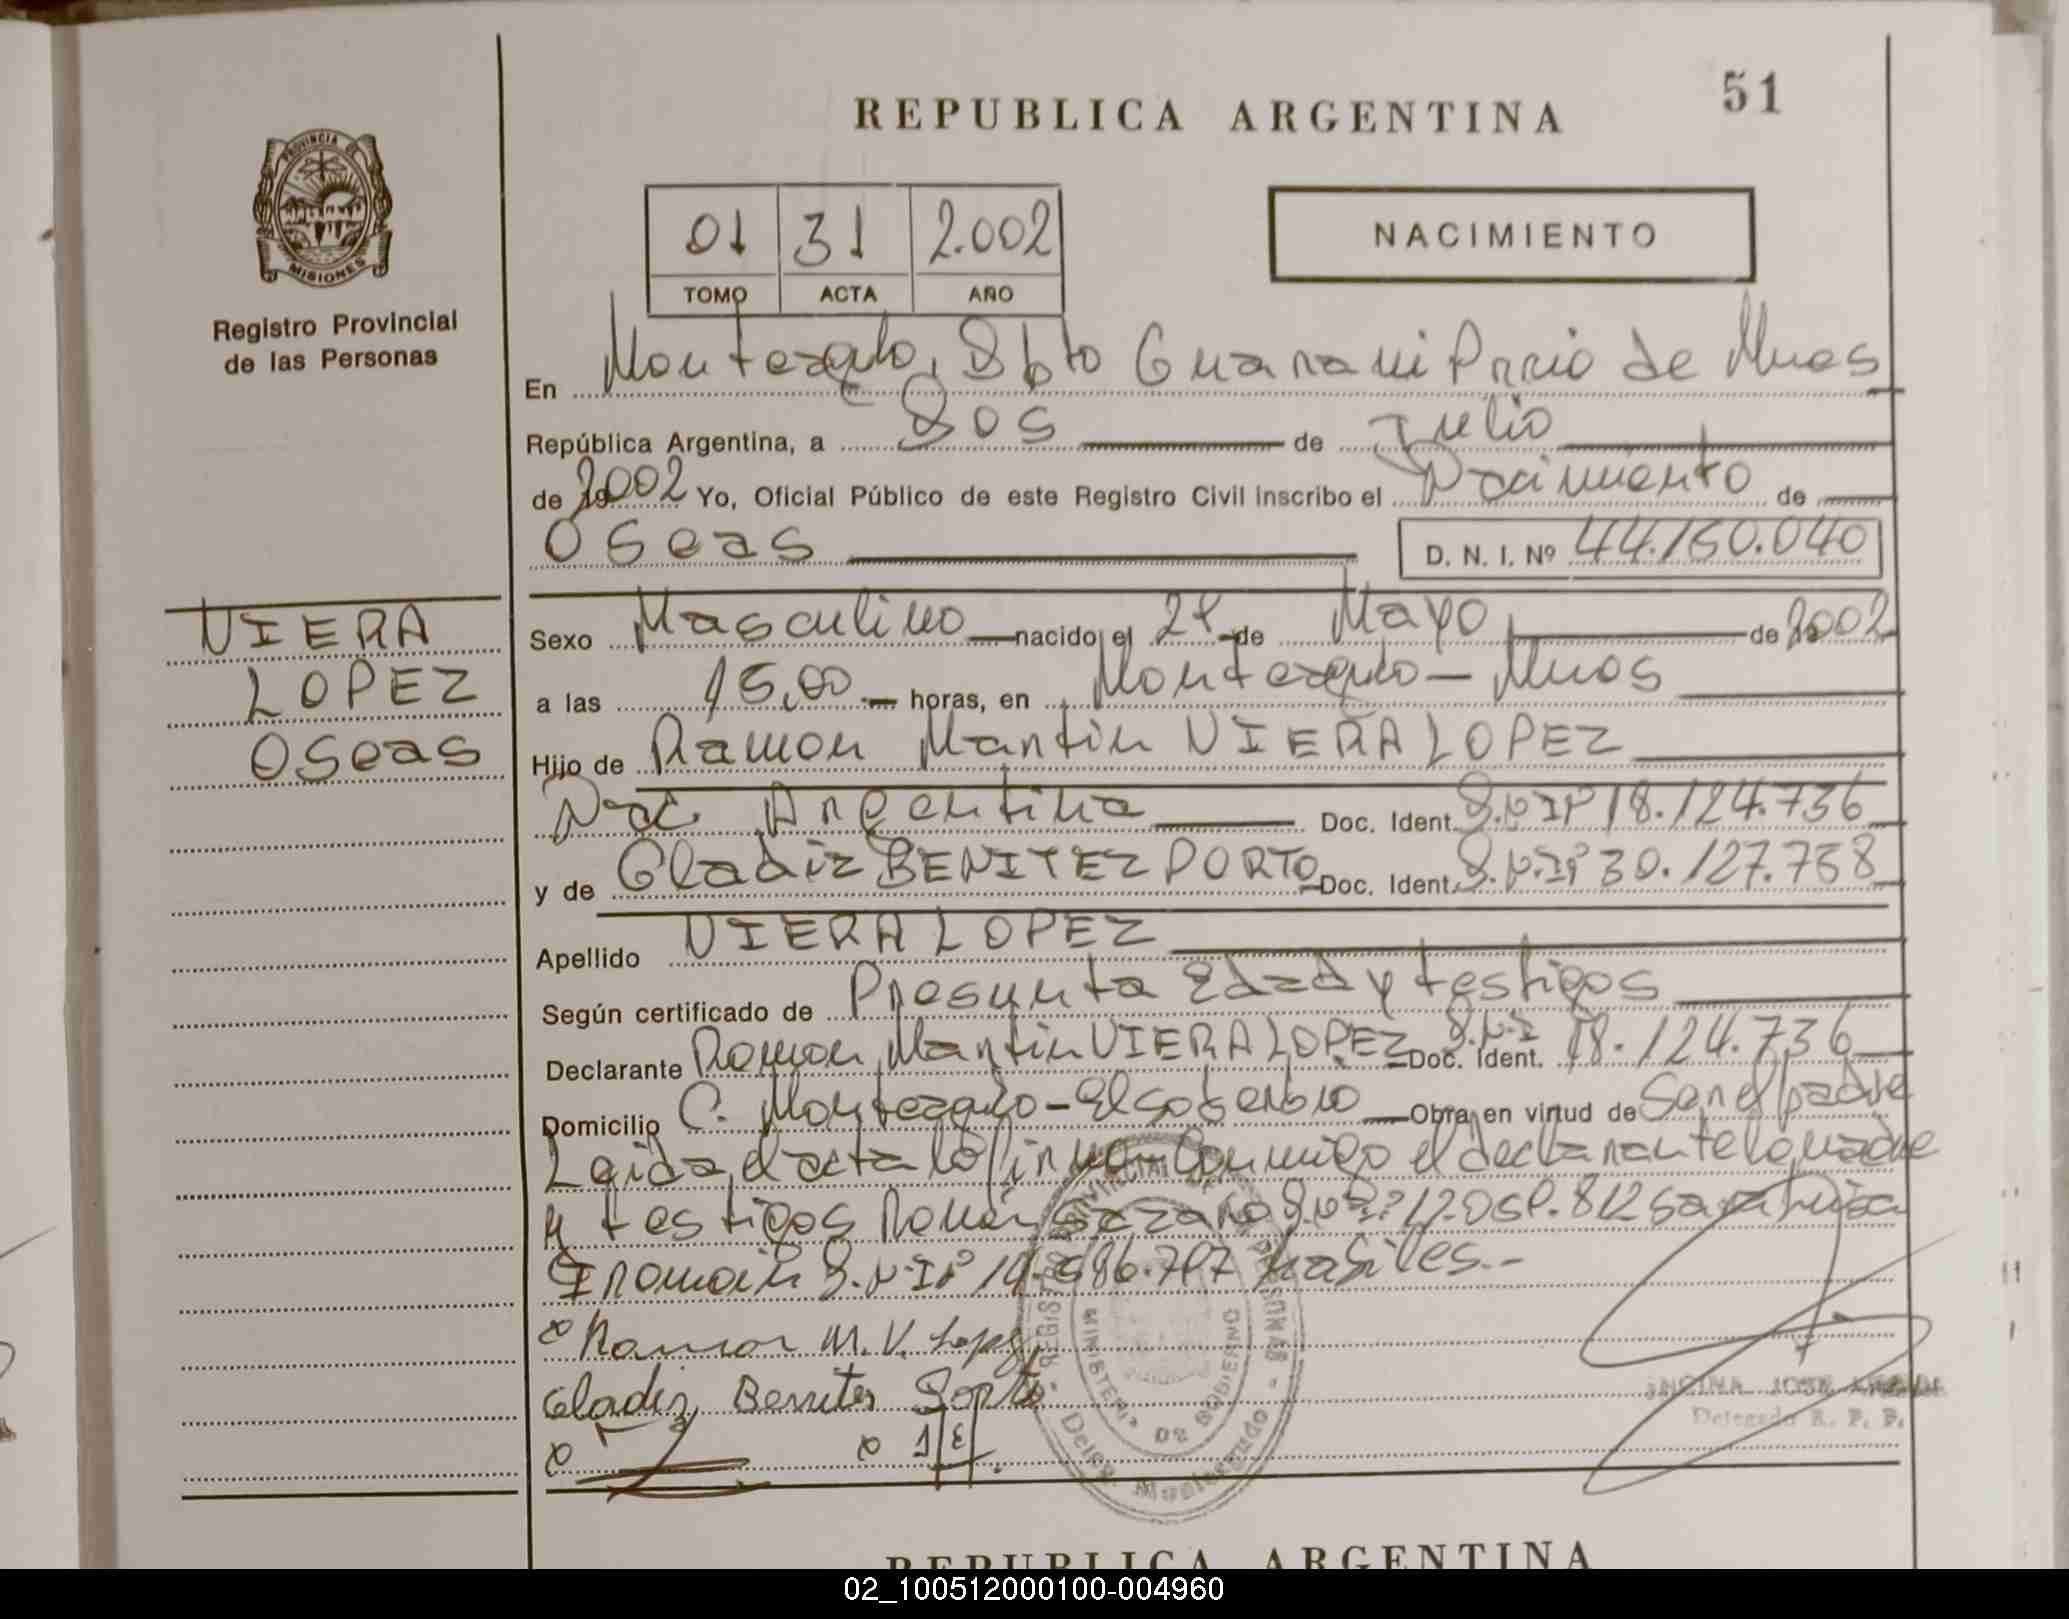 51
REPUBLICA ARGENTINA
PROVINCIA DE
MISIONES
Registro Provincial
de las Personas
01 31 2.002
TOMO ACTA AÑO
NACIMIENTO
En Monteagudo, Dpto Guarani Prcio de Mnes
República Argentina, a Dos de Julio
de 2002 Yo, Oficial Público de este Registro Civil inscribo el Nacimiento de
Oseas D. N. I. Nº 44.150.040
VIERA
LOPEZ
Oseas
Sexo Masculino nacido el de Mayo de 2002
a las 15,00 horas, en Monteagudo - Mnes
Hijo de Ramon Martin VIERA LOPEZ
Nac. Argentina Doc. Ident. D.N.Iº 18.124.736
y de Gladiz BENITEZ PORTO Doc. Ident. D.N.Iº 30.127.758
Apellido VIERA LOPEZ
Según certificado de Presunta Edad y testigos
Declarante Ramon Martin VIERA LOPEZ D.N.I Doc. Ident. 18.124.736
Domicilio C. Monteagudo - El Soberbio Obra en virtud de Ser el padre
Leida el acta lo firma conmigo el declarante la madre
y testigos
habiles.-
Ramon M. V. Lopez
Gladiz Benites Porto
REGISTRO PROVINCIAL DE LAS PERSONAS
MINISTERIO DE GOBIERNO
Deleg. Monteagudo
ENCINA JOSE
Delegado R. P. P.
REPUBLICA ARGENTINA
02_100512000100-004960